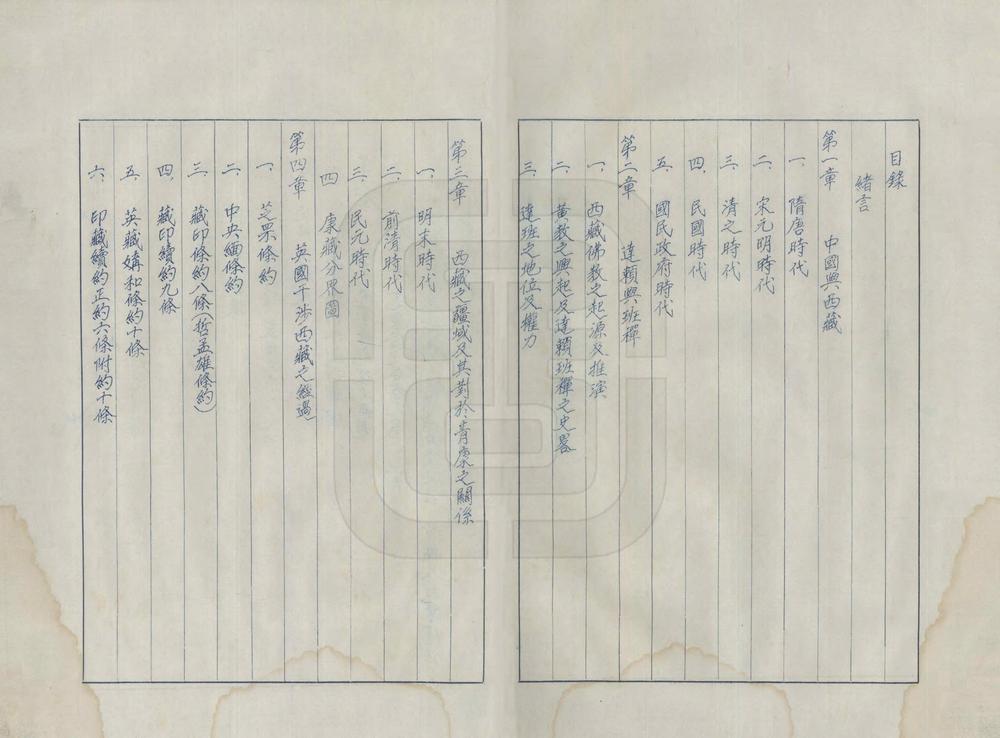 目錄
緒言
第一章　中國與西藏
一、隋唐時代
二、宋元明時代
三、清之時代
四、民國時代
五、國民政府時代
第二章　達賴與班禪
一、西藏佛教之起源及推演
二、黃教之興起及達賴班禪之史畧
三、達班之地位及權力
第三章　西藏之疆域及其對於青康之關係
一、明末時代
二、前清時代
三、民元時代
四　康藏分界圖
第四章　英國干涉西藏之經過
一、芝罘條約
二、中央緬條約
三、藏印條約八條（哲孟雄條約）
四、藏印續約九條
五、英藏媾和條約十條
六、印藏續約正約六條附約十條